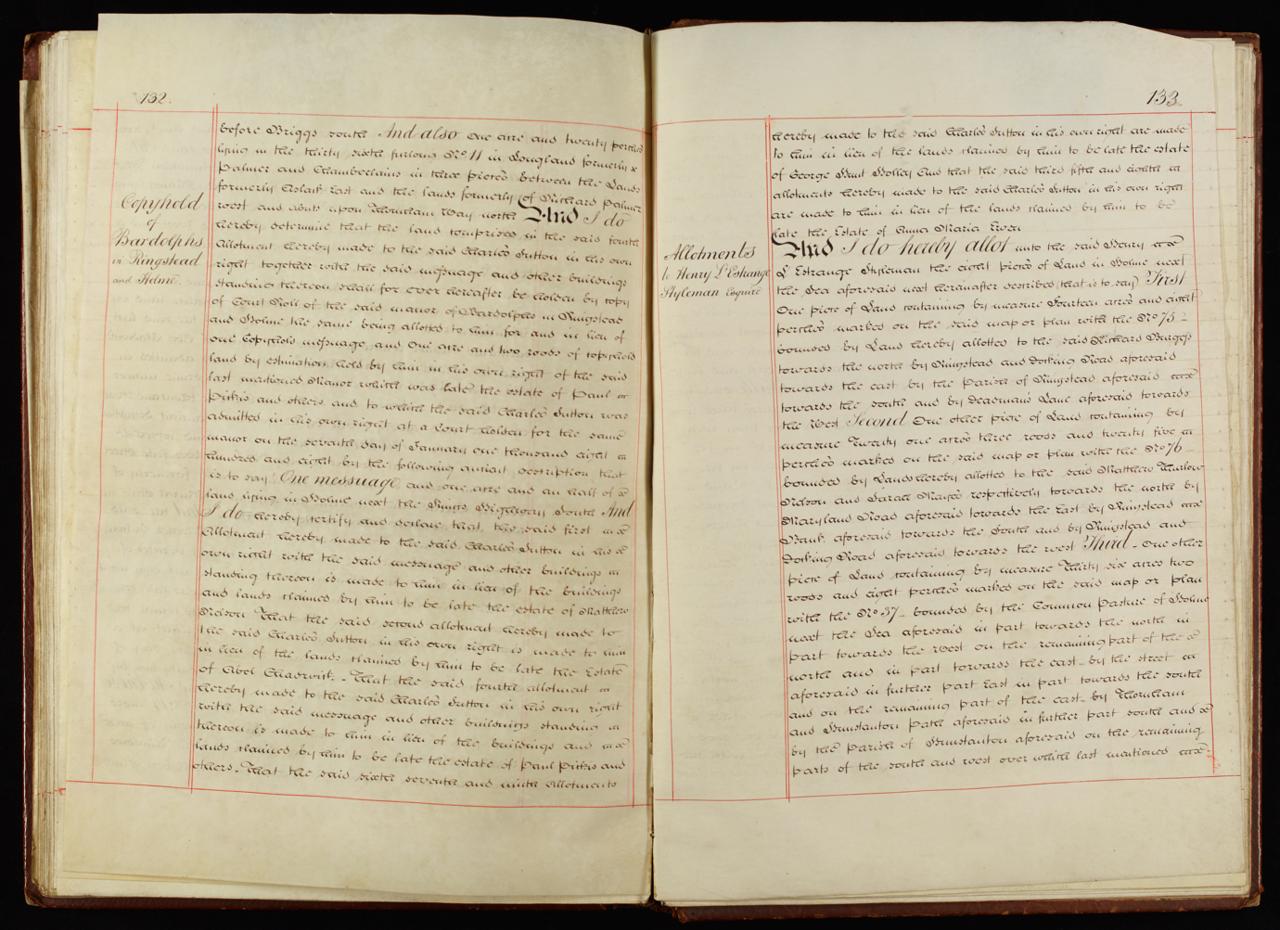 132.
before Briggs south And also One acre and twenty perches
lying in the thirty sixth furlong No. 11 in Longland formerly x
Palmer and Chamberlains in three pieces between the Lands
formerly East and the lands formerly of Richard Palmer
west and abuts upon Thornham Way north And I do
hereby determine that the land comprised in the said fourth
Allotment hereby made to the said Charles Sutton in his own
right together with the said messuage and other buildings
standing thereon shall for ever hereafter be holden by copy
of Court Roll of the said manor of Bardolphs in Ringstead
and Holme the same being allotted to him for and in lieu of
one Copyhold messuage and One acre and two roods of copyhold
land by estimation held by him in his own right of the said
last mentioned Manor which was late the estate of Paul
and others and to which the said Charles Sutton was
admitted in his own right at a Court holden for the same
manor on the seventh day of January one thousand eight
hundred and eight by the following antient description that
is to say One messuage and one acre and an half of
land lying in Holme next the Kings Highway South And
I do hereby certify and declare that the said first
Allotment hereby made to the said Charles Sutton in his
own right with the said messuage and other buildings
standing thereon is made to him in lieu of the buildings
and lands claimed by him to be late the estate of Matthew
Nelson That the said second allotment hereby made to
the said Charles Sutton in his own right is made to him
in lieu of the lands claimed by him to be late the Estate
of Abel Chadwick. That the said fourth allotment
hereby made to the said Charles Sutton in his own right
with the said messuage and other buildings standing
thereon is made to him in lieu of the buildings and
lands claimed by him to be late the estate of Paul and
others. That the said sixth seventh and ninth Allotments
Copyhold
of
Bardolphs
in Ringstead
and Holme
133
hereby made to the said Charles Sutton in his own right are made
to him in lieu of the lands claimed by him to be late the estate
of George Hunt Holley And that the said third fifth and eighth
allotments hereby made to the said Charles Sutton in his own right
are made to him in lieu of the lands claimed by him to be
late the Estate of Anna Maria
And I do hereby allot unto the said Henry
L'Estrange Styleman the eight pieces of Land in Holme next
the Sea aforesaid next hereinafter described (that is to say) First
One piece of Land containing by measure Fourteen acres and eight
perches marked on the said map or plan with the No. 75
bounded by Land hereby allotted to the said Richard Briggs
towards the north by Ringstead and Docking Road aforesaid
towards the east by the Parish of Ringstead aforesaid
towards the south and by Deadmans Lane aforesaid towards
the West Second One other piece of Land containing by
measure Twenty one acres three roods and twenty five
perches marked on the said map or plan with the No. 76
bounded by Lands hereby allotted to the said Matthew Thurlow
Nelson and Sarah respectively towards the north by
Maryland Road aforesaid towards the East by Ringstead
Bank aforesaid towards the South and by Ringstead and
Docking Road aforesaid towards the west Third One other
piece of Land containing by measure Thirty six acres two
roods and eight perches marked on the said map or plan
with the No. 37 bounded by the Common Pasture of Holme
next the Sea aforesaid in part towards the north in
part towards the West on the remaining part of the
north and in part towards the east by the street
aforesaid in further part East in part towards the south
and on the remaining part of the east by Thornham
and Hunstanton Path aforesaid in further part south and
by the Parish of Hunstanton aforesaid on the remaining
parts of the south and west over which last mentioned
Allotments
to Henry L'Estrange
Styleman Esquire